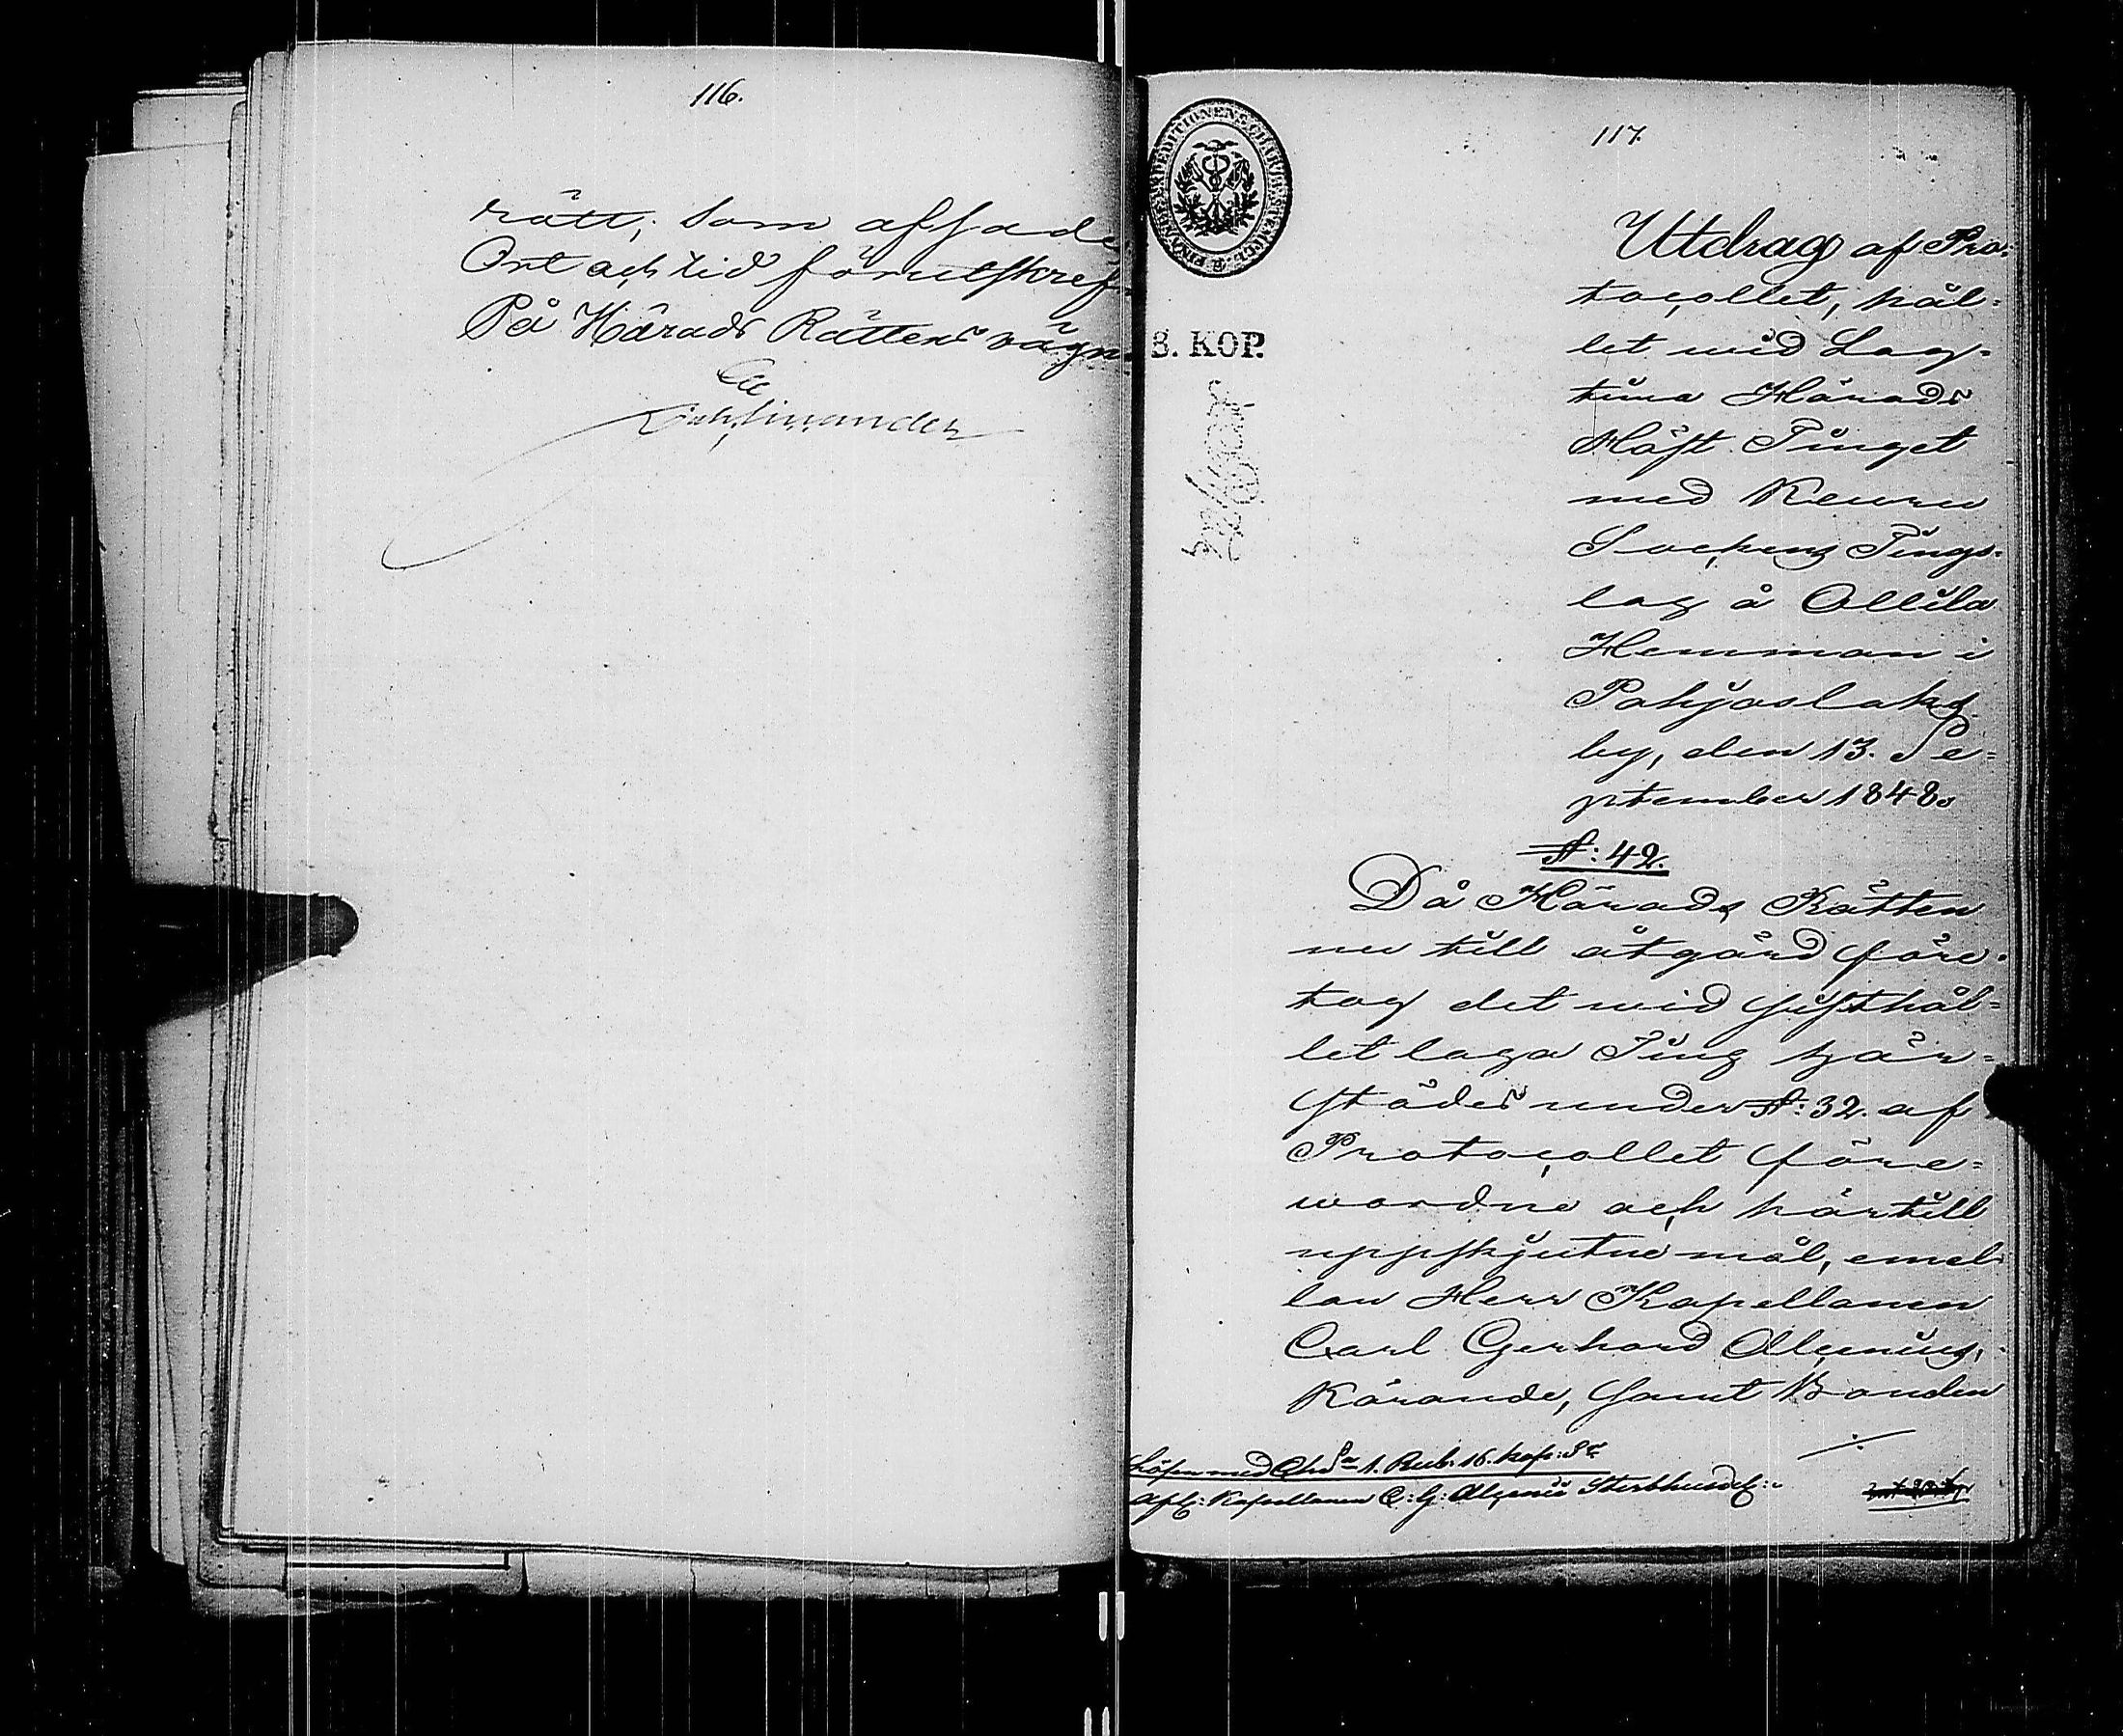 116.
rätt; som afsade
Ort och tid förutskref
På Härads Rättens vägn
117.
8. KOP.
Utdrag af Pro-
tocollet, hål-
let wid Lag-
tima Härads
Höst Tinget
med Keuru
Sochens Tings-
lag å Ollila
Hemman i
Pohjoslaks
by, den 13. Se-
ptember 1848.
§: 42.
Då Härads Rätten
nu till åtgärd före-
tog det wid sisthål-
let laga Ting här-
städes under §: 32. af
Protocollet före-
wordne och härtill
uppskjutne mål, emel-
lan Herr Kapellanen
Carl Gerhard Alcenius,
Kärande, samt Bonden
./.
Lösen med Cha 1. Rub. 16. kop: Sr
Afl: Kapellanen C: G: Alcenii Sterbhus